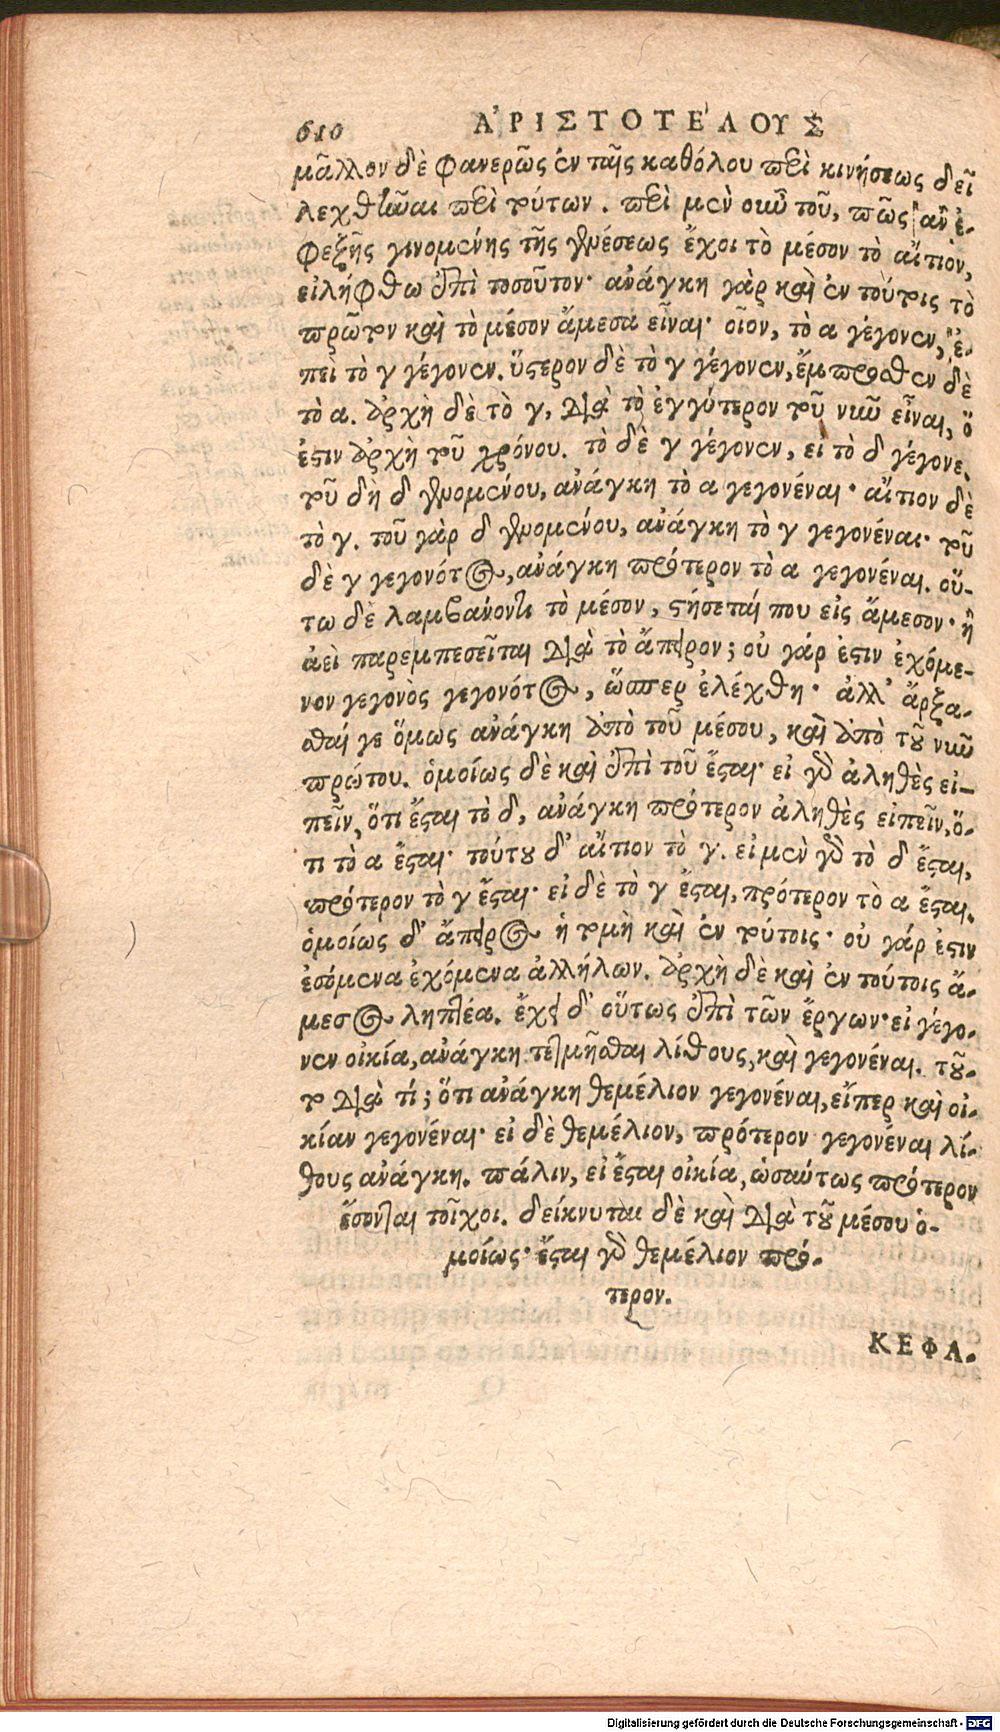 610 ἈΡΙΣΤΟΤΈΛΟΥΣ
μᾶλλον δὲ φανερῶς ἐν τοῖς καθόλου περὶ κινήσεως δεῖ
λεχθῆναι περὶ αὐτῶν. περὶ μὲν οὖν τοῦ, πῶς ἂν ἐ-
φεξῆς γινομένης τῆς γενέσεως ἔχοι τὸ μέσον τὸ αἴτιον,
εἰλήφθω ἐπὶ τοσοῦτον· ἀνάγκη γὰρ καὶ ἐν τούτοις τὸ
πρῶτον καὶ τὸ μέσον ἄμεσα εἶναι· οἷον, τὸ α γέγονεν, ἐ-
πεὶ τὸ γ γέγονεν. ὕστερον δὲ τὸ γ γέγονεν, ἔμπροσθεν δὲ
τὸ α. ἀρχὴ δὲ τὸ γ, διὰ τὸ ἐγγύτερον τοῦ νῦν εἶναι, ὅ
ἐστιν ἀρχὴ τοῦ χρόνου. τὸ δὲ γ γέγονεν, εἰ τὸ δ γέγονε.
τοῦ δὴ δ γενομένου, ἀνάγκη τὸ α γεγονέναι· αἴτιον δὲ
τὸ γ. τοῦ γὰρ δ γενομένου, ἀνάγκη τὸ γ γεγονέναι· τοῦ
δὲ γ γεγονότος, ἀνάγκη πρότερον τὸ α γεγονέναι. οὕ-
τω δὲ λαμβάνοντι τὸ μέσον, στήσεταί που εἰς ἄμεσον· ἢ
ἀεὶ παρεμπεσεῖται διὰ τὸ ἄπειρον; οὐ γάρ ἐστιν ἐχόμε-
νον γεγονὸς γεγονότος, ὥσπερ ἐλέχθη· ἀλλ' ἄρξα-
σθαί γε ὅμως ἀνάγκη ἀπὸ τοῦ μέσου, καὶ ἀπὸ τοῦ νῦν
πρώτου. ὁμοίως δὲ καὶ ἐπὶ τοῦ ἔσται· εἰ γὰρ ἀληθὲς εἰ-
πεῖν, ὅτι ἔσται τὸ δ, ἀνάγκη πρότερον ἀληθὲς εἰπεῖν, ὅ-
τι τὸ α ἔσται· τούτου δ' αἴτιον τὸ γ. εἰ μὲν γὰρ τὸ δ ἔσται,
πρότερον τὸ γ ἔσται· εἰ δὲ τὸ γ ἔσται, πρότερον τὸ α ἔσται.
ὁμοίως δ' ἄπειρος ἡ τομὴ καὶ ἐν τούτοις· οὐ γάρ ἐστιν
ἐσόμενα ἐχόμενα ἀλλήλων. ἀρχὴ δὲ καὶ ἐν τούτοις ἄ-
μεσος ληπτέα. ἔχει δ' οὕτως ἐπὶ τῶν ἔργων· εἰ γέγο-
νεν οἰκία, ἀνάγκη τετμῆσθαι λίθους, καὶ γεγονέναι. τοῦ-
το διὰ τί; ὅτι ἀνάγκη θεμέλιον γεγονέναι, εἴπερ καὶ οἰ-
κίαν γεγονέναι· εἰ δὲ θεμέλιον, πρότερον γεγονέναι λί-
θους ἀνάγκη. πάλιν, εἰ ἔσται οἰκία, ὡσαύτως πρότερον
ἔσονται τοῖχοι. δείκνυται δὲ καὶ διὰ τοῦ μέσου ὁ-
μοίως· ἔσται γὰρ θεμέλιον πρό-
τερον.
ΚΕΦΑ.
Digitalisierung gefördert durch die Deutsche Forschungsgemeinschaft - DFG